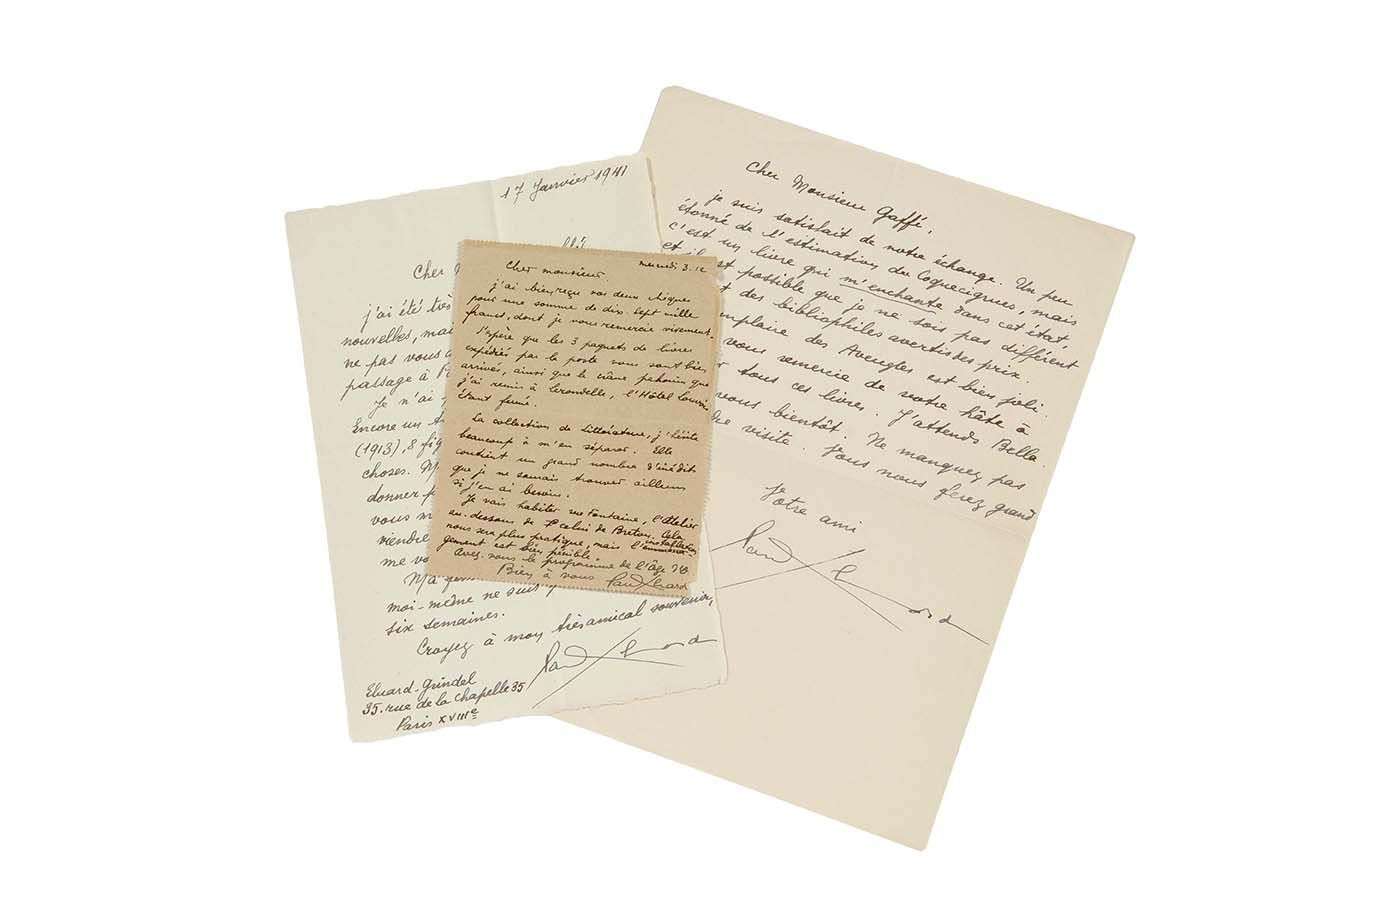 17 Janvier 1941
Cher M
j'ai été trè
nouvelles, mai
ne pas vous a
passage à
Je n'ai
Encore un
(1913), 8 fig
choses. M
donner
vous m
viendre
me vo
Ma
moi-même ne suis
six semaines.
Croyez à mon très amical souvenir,
Paul Eluard
Eluard-Grindel
35, rue de la Chapelle 35
Paris XVIIIe
mercredi 3.12
Cher monsieur,
j'ai bien reçu vos deux chèques
pour une somme de dix-sept mille
francs, dont je vous remercie vivement.
J'espère que les 3 paquets de livres
expédiés par la poste vous sont bien
arrivés, ainsi que le crâne pahouin que
j'ai remis à Lerondelle, l'Hôtel Louvois
étant fermé.
La collection de Littérature, j'hésite
beaucoup à m'en séparer. Elle
contient un grand nombre d'inédits
que je ne saurais trouver ailleurs
si j'en ai besoin.
Je vais habiter rue Fontaine, l'atelier
au-dessous de celui de Breton. Cela
nous sera plus pratique, mais l'emména-
installation
gement est bien pénible.
Avez-vous le programme de l'Âge d'
Bien à vous Paul Eluard
Cher Monsieur Gaffé,
je suis satisfait de notre échange. Un peu
étonné de l'estimation du Coquecigrues, mais
c'est un livre qui m'enchante dans cet état
et il est possible que je ne sois pas différent
des bibliophiles avertis des prix.
emplaire des Aveugles est bien joli.
vous remercie de votre hâte à
tous ces livres. J'attends Bella.
vous bientôt. Ne manquez pas
dre visite. Vous nous ferez grand
Votre ami
Paul Eluard